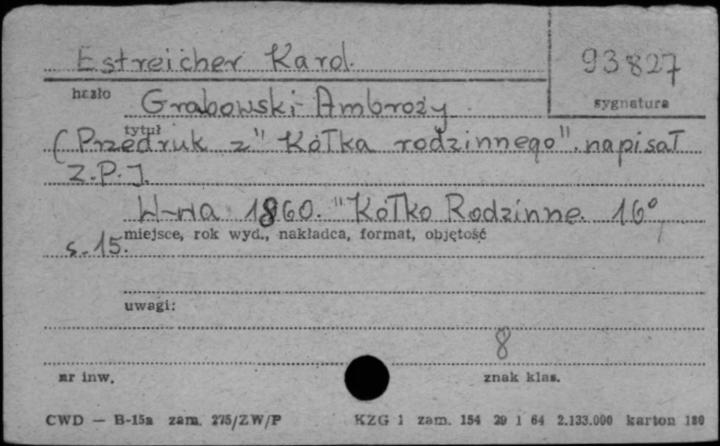 Estreicher Karol.
93827
hasło
sygnatura
Grabowski Ambroży
tytuł
(Przedruk z "Kółka rodzinnego". napisał
Z.P.J.
W-wa 1860. "Kółko Rodzinne. 16°
miejsce, rok wyd., nakładca, format, objętość
s. 15.
uwagi:
8
nr inw.
znak klas.
CWD — B-15a zam. 275/ZW/P
KZG 1 zam. 154 29 1 64 2.133.000 karton 180